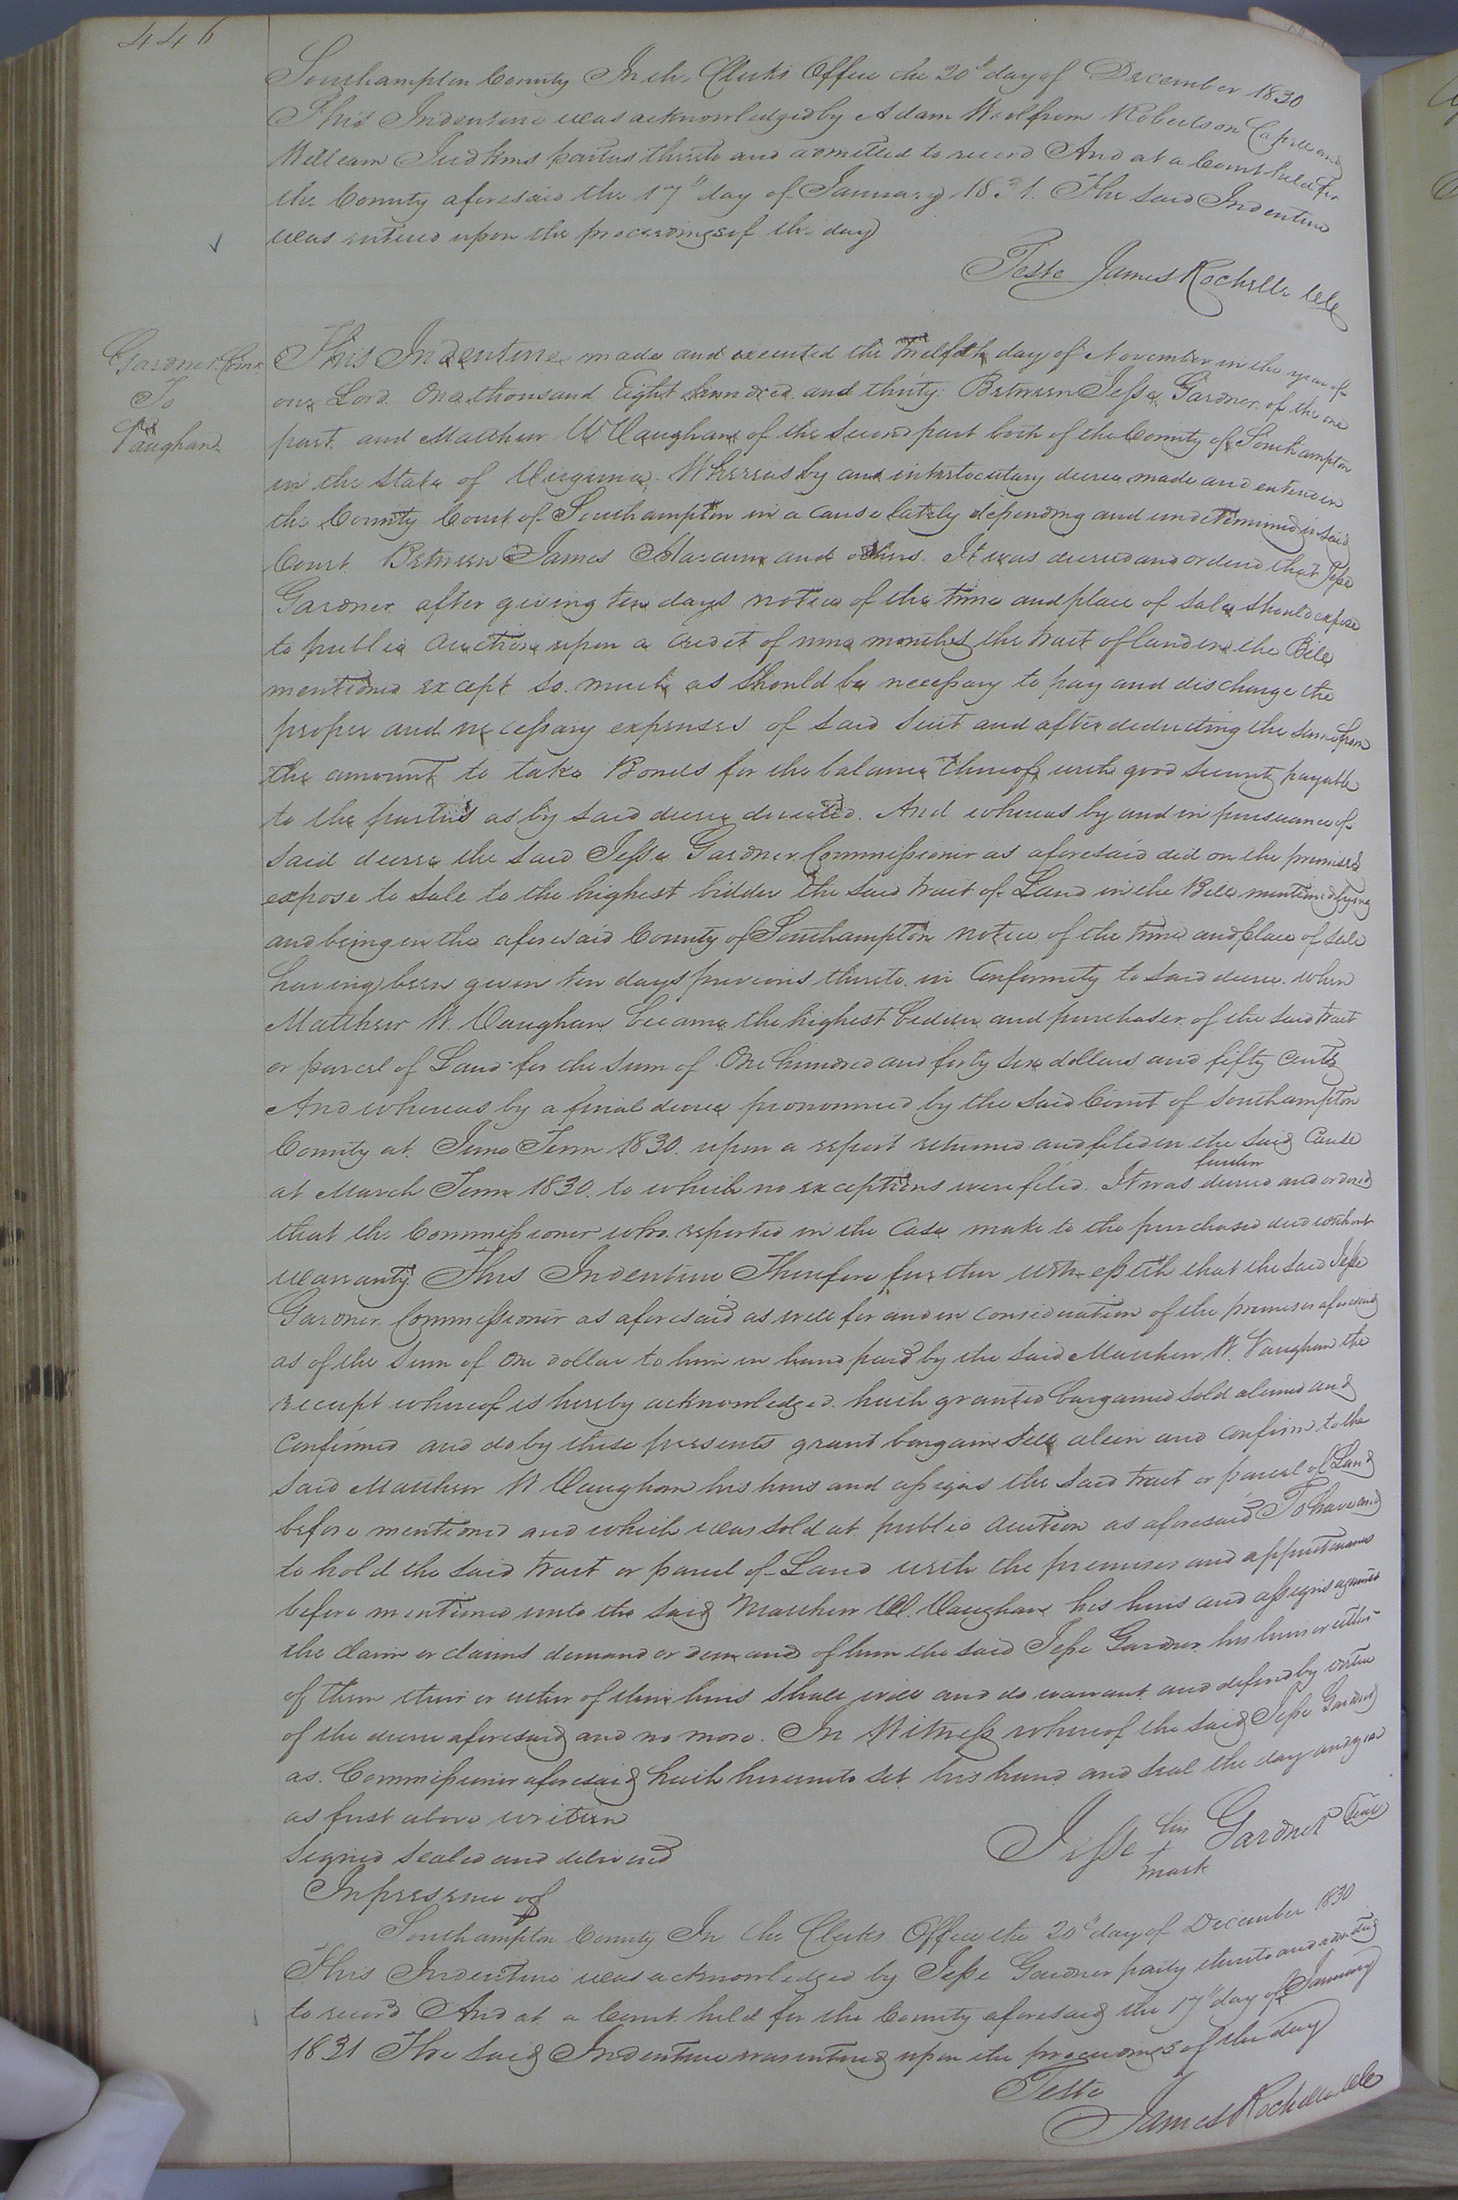 446
Southampton County In the Clerks Office the 20th day of December 1830
This Indenture was acknowledged by Adam Robertson Capell and
William Judkins parties thereto and admitted to record And at a Court held for
the County aforesaid the 17th day of January 1831. The said Indenture
was entered upon the proceedings of the day
Teste James Rochelle Clk
Gardner Comr
To
Vaughan
This Indenture made and executed the twelfth day of November in the year of
our Lord One thousand Eight hundred and thirty Between Jesse Gardner of the one
part and Matthew W Vaughan of the second part both of the County of Southampton
in the State of Virginia. Whereas by an interlocutary decree made and entered in
the County Court of Southampton in a cause lately depending and undetermined in said
Court Between James and others. It was decreed and ordered that Jesse
Gardner after giving ten days notice of the time and place of sale should expose
to public auction upon a credit of nine months the tract of land in the Bill
mentioned except so much as should be necessary to pay and discharge the
proper and necessary expenses of said suit and after deducting the same from
the amount to take Bonds for the balance thereof with good security payable
to the parties as by said decree directed. And whereas by and in pursuance of
said decree the said Jesse Gardner Commissioner as aforesaid did on the premises
expose to sale to the highest bidder the said tract of Land in the Bill mentioned lying
and being in the aforesaid County of Southampton notice of the time and place of sale
having been given ten days previous thereto in Conformity to said decree when
Matthew W. Vaughan became the highest bidder and purchaser of the said tract
or parcel of Land for the sum of One hundred and forty six dollars and fifty cents
And whereas by a final decree pronounced by the said Court of Southampton
County at June Term 1830. upon a report returned and filed in the said Cause
at March Term 1830. to which no exceptions were filed. It was further decreed and ordered
that the Commissioner who reported in the Case make to the purchaser deed without
warranty. This Indenture Therefore further witnesseth that the said Jesse
Gardner Commissioner as aforesaid as well for and in consideration of the premises aforesaid
as of the sum of One dollar to him in hand paid by the said Matthew W. Vaughan the
receipt whereof is hereby acknowledged hath granted bargained sold aliened and
confirmed and do by these presents grant bargain sell alien and confirm to the
said Matthew W Vaughan his heirs and assigns the said tract or parcel of Land
before mentioned and which was sold at public auction as aforesaid To have and
to hold the said tract or parcel of Land with the premises and appurtenances
before mentioned unto the said Matthew W. Vaughan his heirs and assigns against
the claim or claims demand or demands of him the said Jesse Gardner his heirs or either
of them their or either of their heirs shall will and do warrant and defend by virtue
of the decree aforesaid and no more. In Witness whereof the said Jesse Gardner
as Commissioner aforesaid hath hereunto set his hand and seal the day and year
as first above written
Signed Sealed and delivered
In presence of
Jesse his + mark Gardner Seal
Southampton County In the Clerks Office the 20th day of December 1830
This Indenture was acknowledged by Jesse Gardner party thereto and admitted
to record And at a Court held for the County aforesaid the 17th day of January
1831 The said Indenture was entered upon the proceedings of the day
Teste
James Rochelle Clk